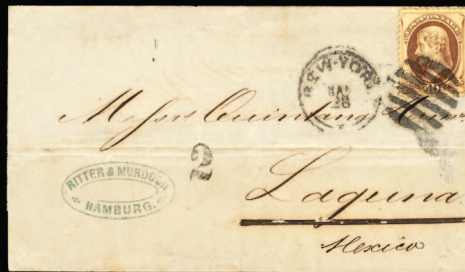 NEW-YORK
MAR
26
10
Messrs Quintana
12
RITTER & MURDOCH
HAMBURG.
Laguna
Mexico